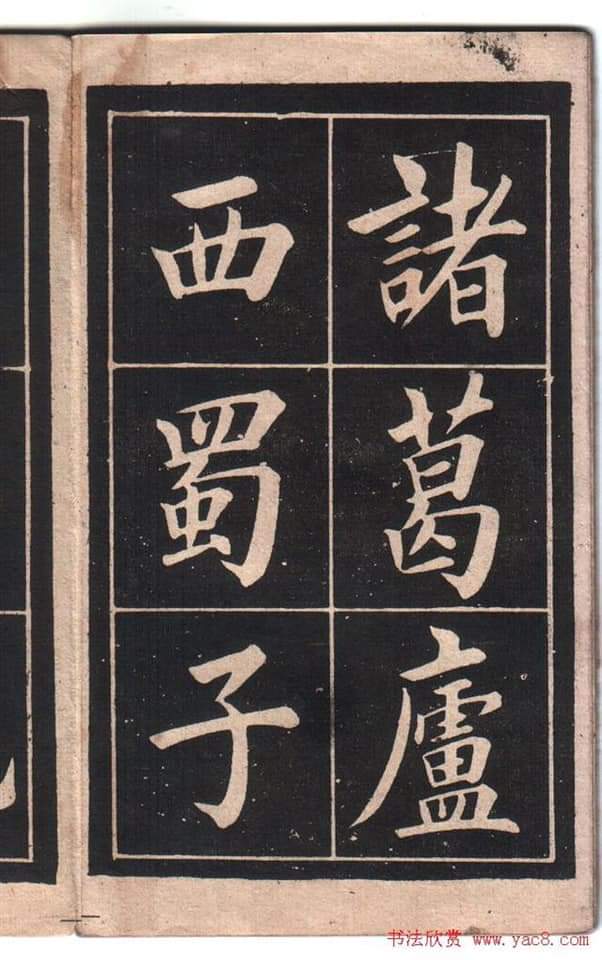 諸葛廬
西蜀子
书法欣赏 www.yac8.com